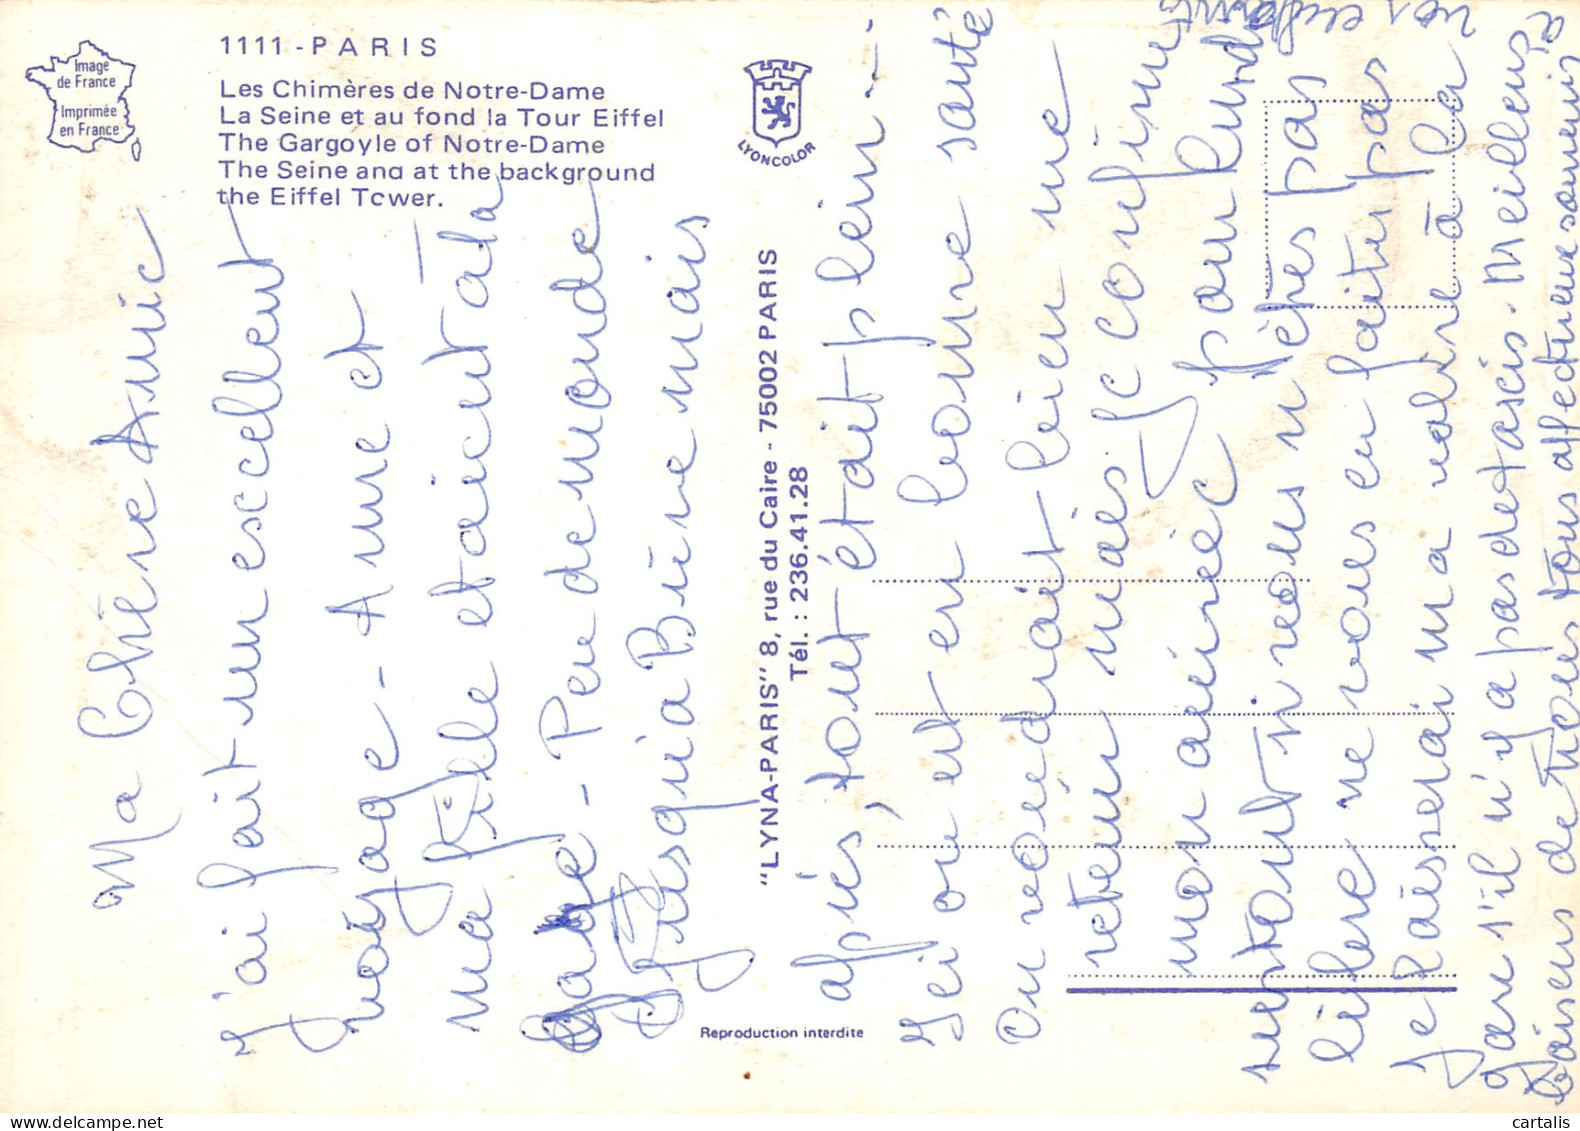 Image
de France
Imprimée
en France
1111 - PARIS
Les Chimères de Notre-Dame
La Seine et au fond la Tour Eiffel
The Gargoyle of Notre-Dame
The Seine and at the background
the Eiffel Tower.
LYONCOLOR
"LYNA-PARIS" 8, rue du Caire - 75002 PARIS
Tél. : 236.41.28
Reproduction interdite
Ma Chère Amie
J'ai fait un excellent
voyage - Anne et
ma fille étaient à la
gare - Peu de monde
jusqu'à Brive mais
après, tout était plein -
Ici on est en bonne santé
On voudrait bien me
retenir mais je confirme
mon arrivée pour lundi
surtout si vous n'êtes pas
libre ne vous en faites pas
Je laisserai ma valise à la
gare s'il n'y a pas de taxis. Meilleurs
baisers de nous tous affectueusement à
vos enfants
cartalis